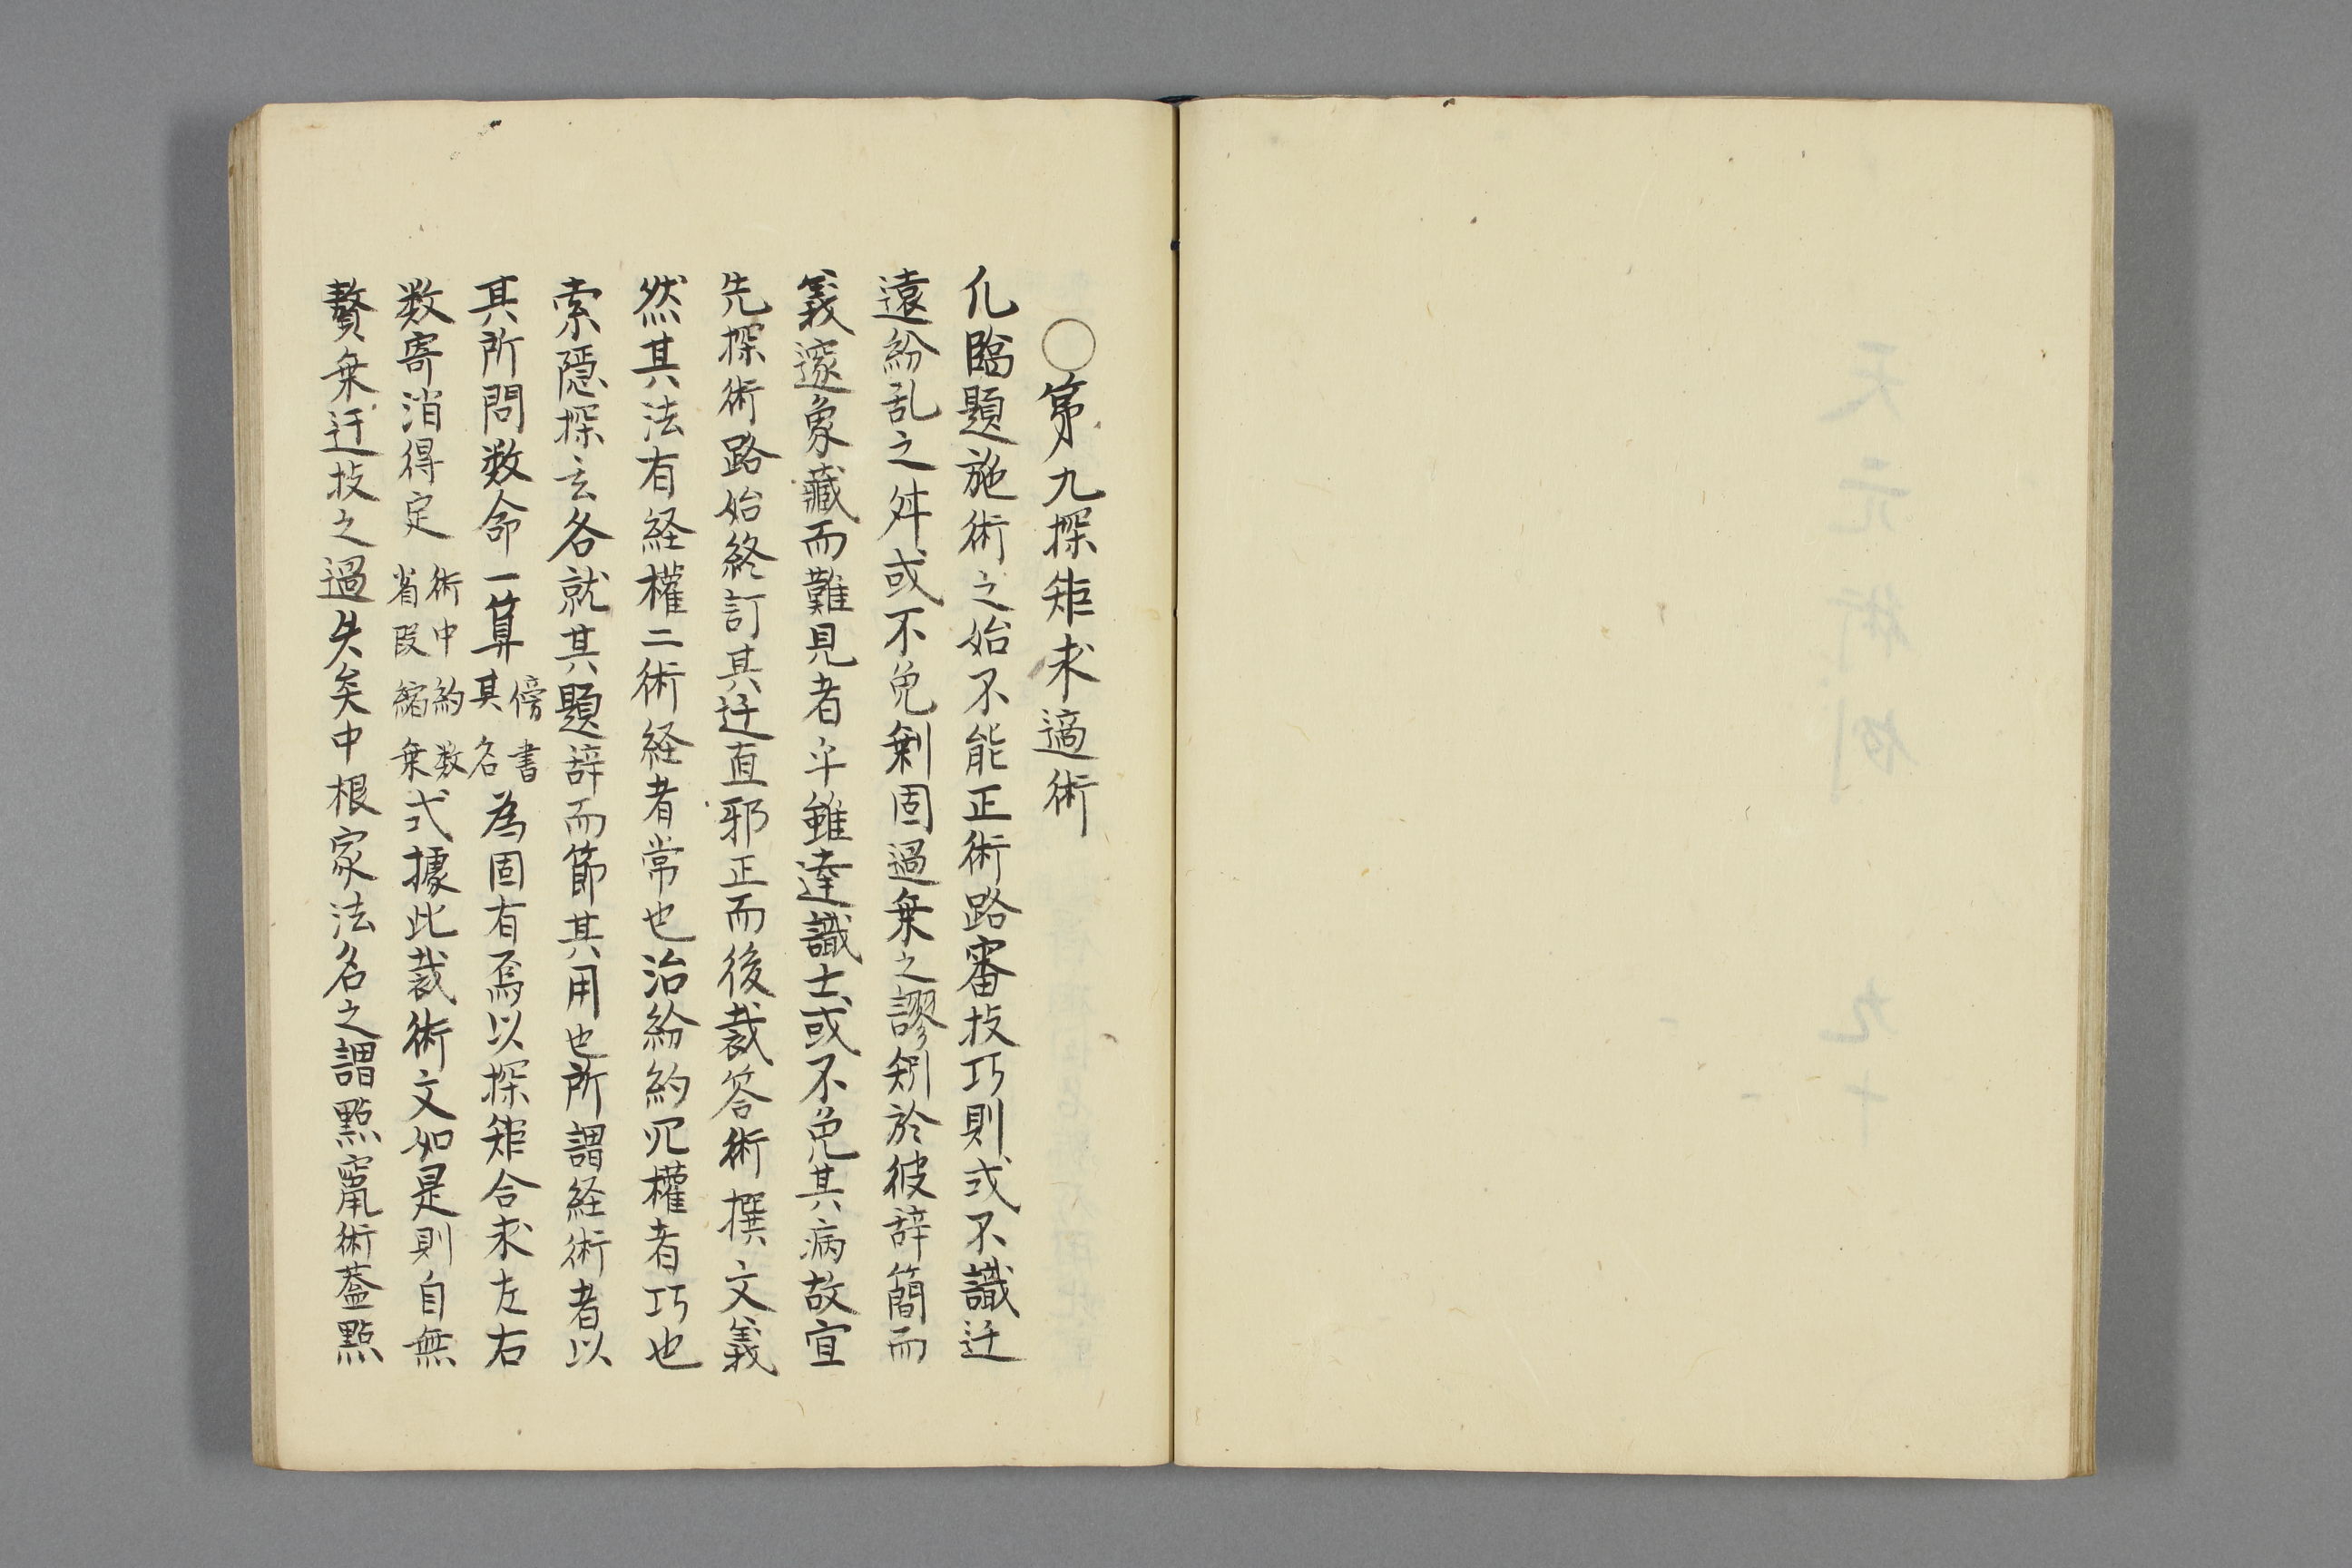 ○第九探矩求適術
凡臨題施術之始不能正術路審技巧則或不識迂
遠紛乱之舛或不免剰固過乗之謬矧於彼辞簡而
義邃象藏而難見者乎雖達識士或不免其病故宜
先探術路始終訂其迂直邪正而後裁答術撰文義
然其法有経權二術経者常也治紛約冗權者巧也
索隠探玄各就其題辞而節其用也所謂経術者以
其所問数命一算傍書其名為固有焉以探矩合求左右
数寄消得定術中約数省叚縮乗式據此裁術文如是則自無
贅乗迂技之過失矣中根家法名之謂點竄術蓋點
天元術例 九十